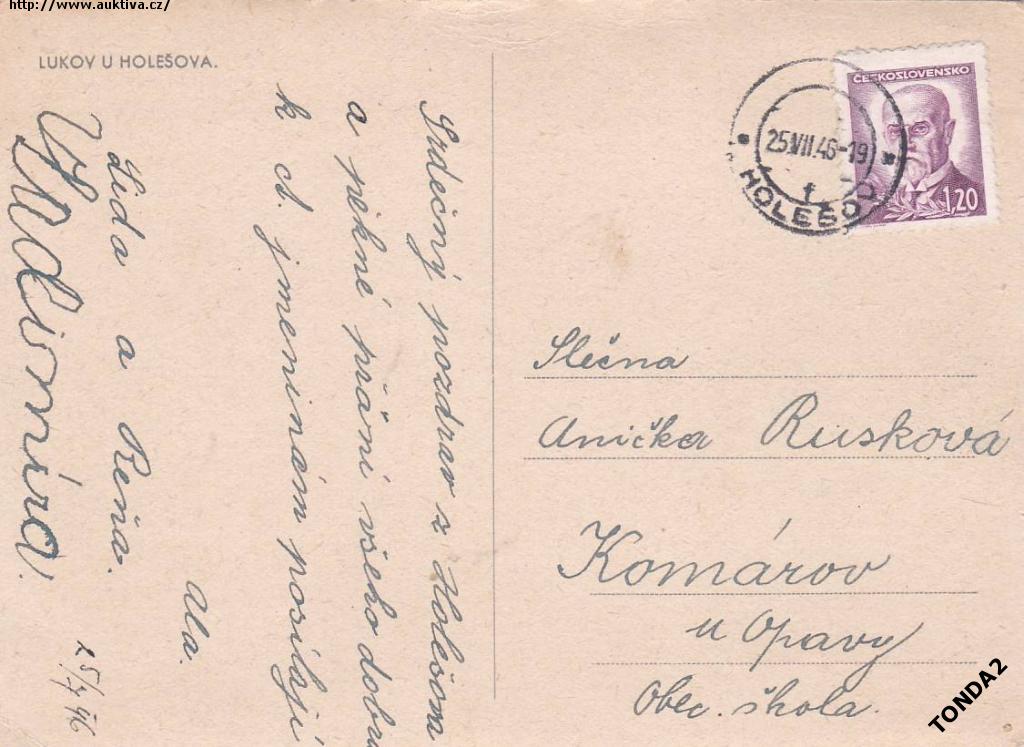 http://www.auktiva.cz/
LUKOV U HOLEŠOVA.
Srdečný pozdrav z Holešova
a pěkné přání všeho dobra
k sv. jmeninám posílají
Ala.
Lida a Reňa.
Vladimíra.
25/7 46
ČESKOSLOVENSKO
1,20
25.VII.46-19
HOLEŠOV
Slečna
Anička Rusková
Komárov
u Opavy
Obec. škola.
TONDA2